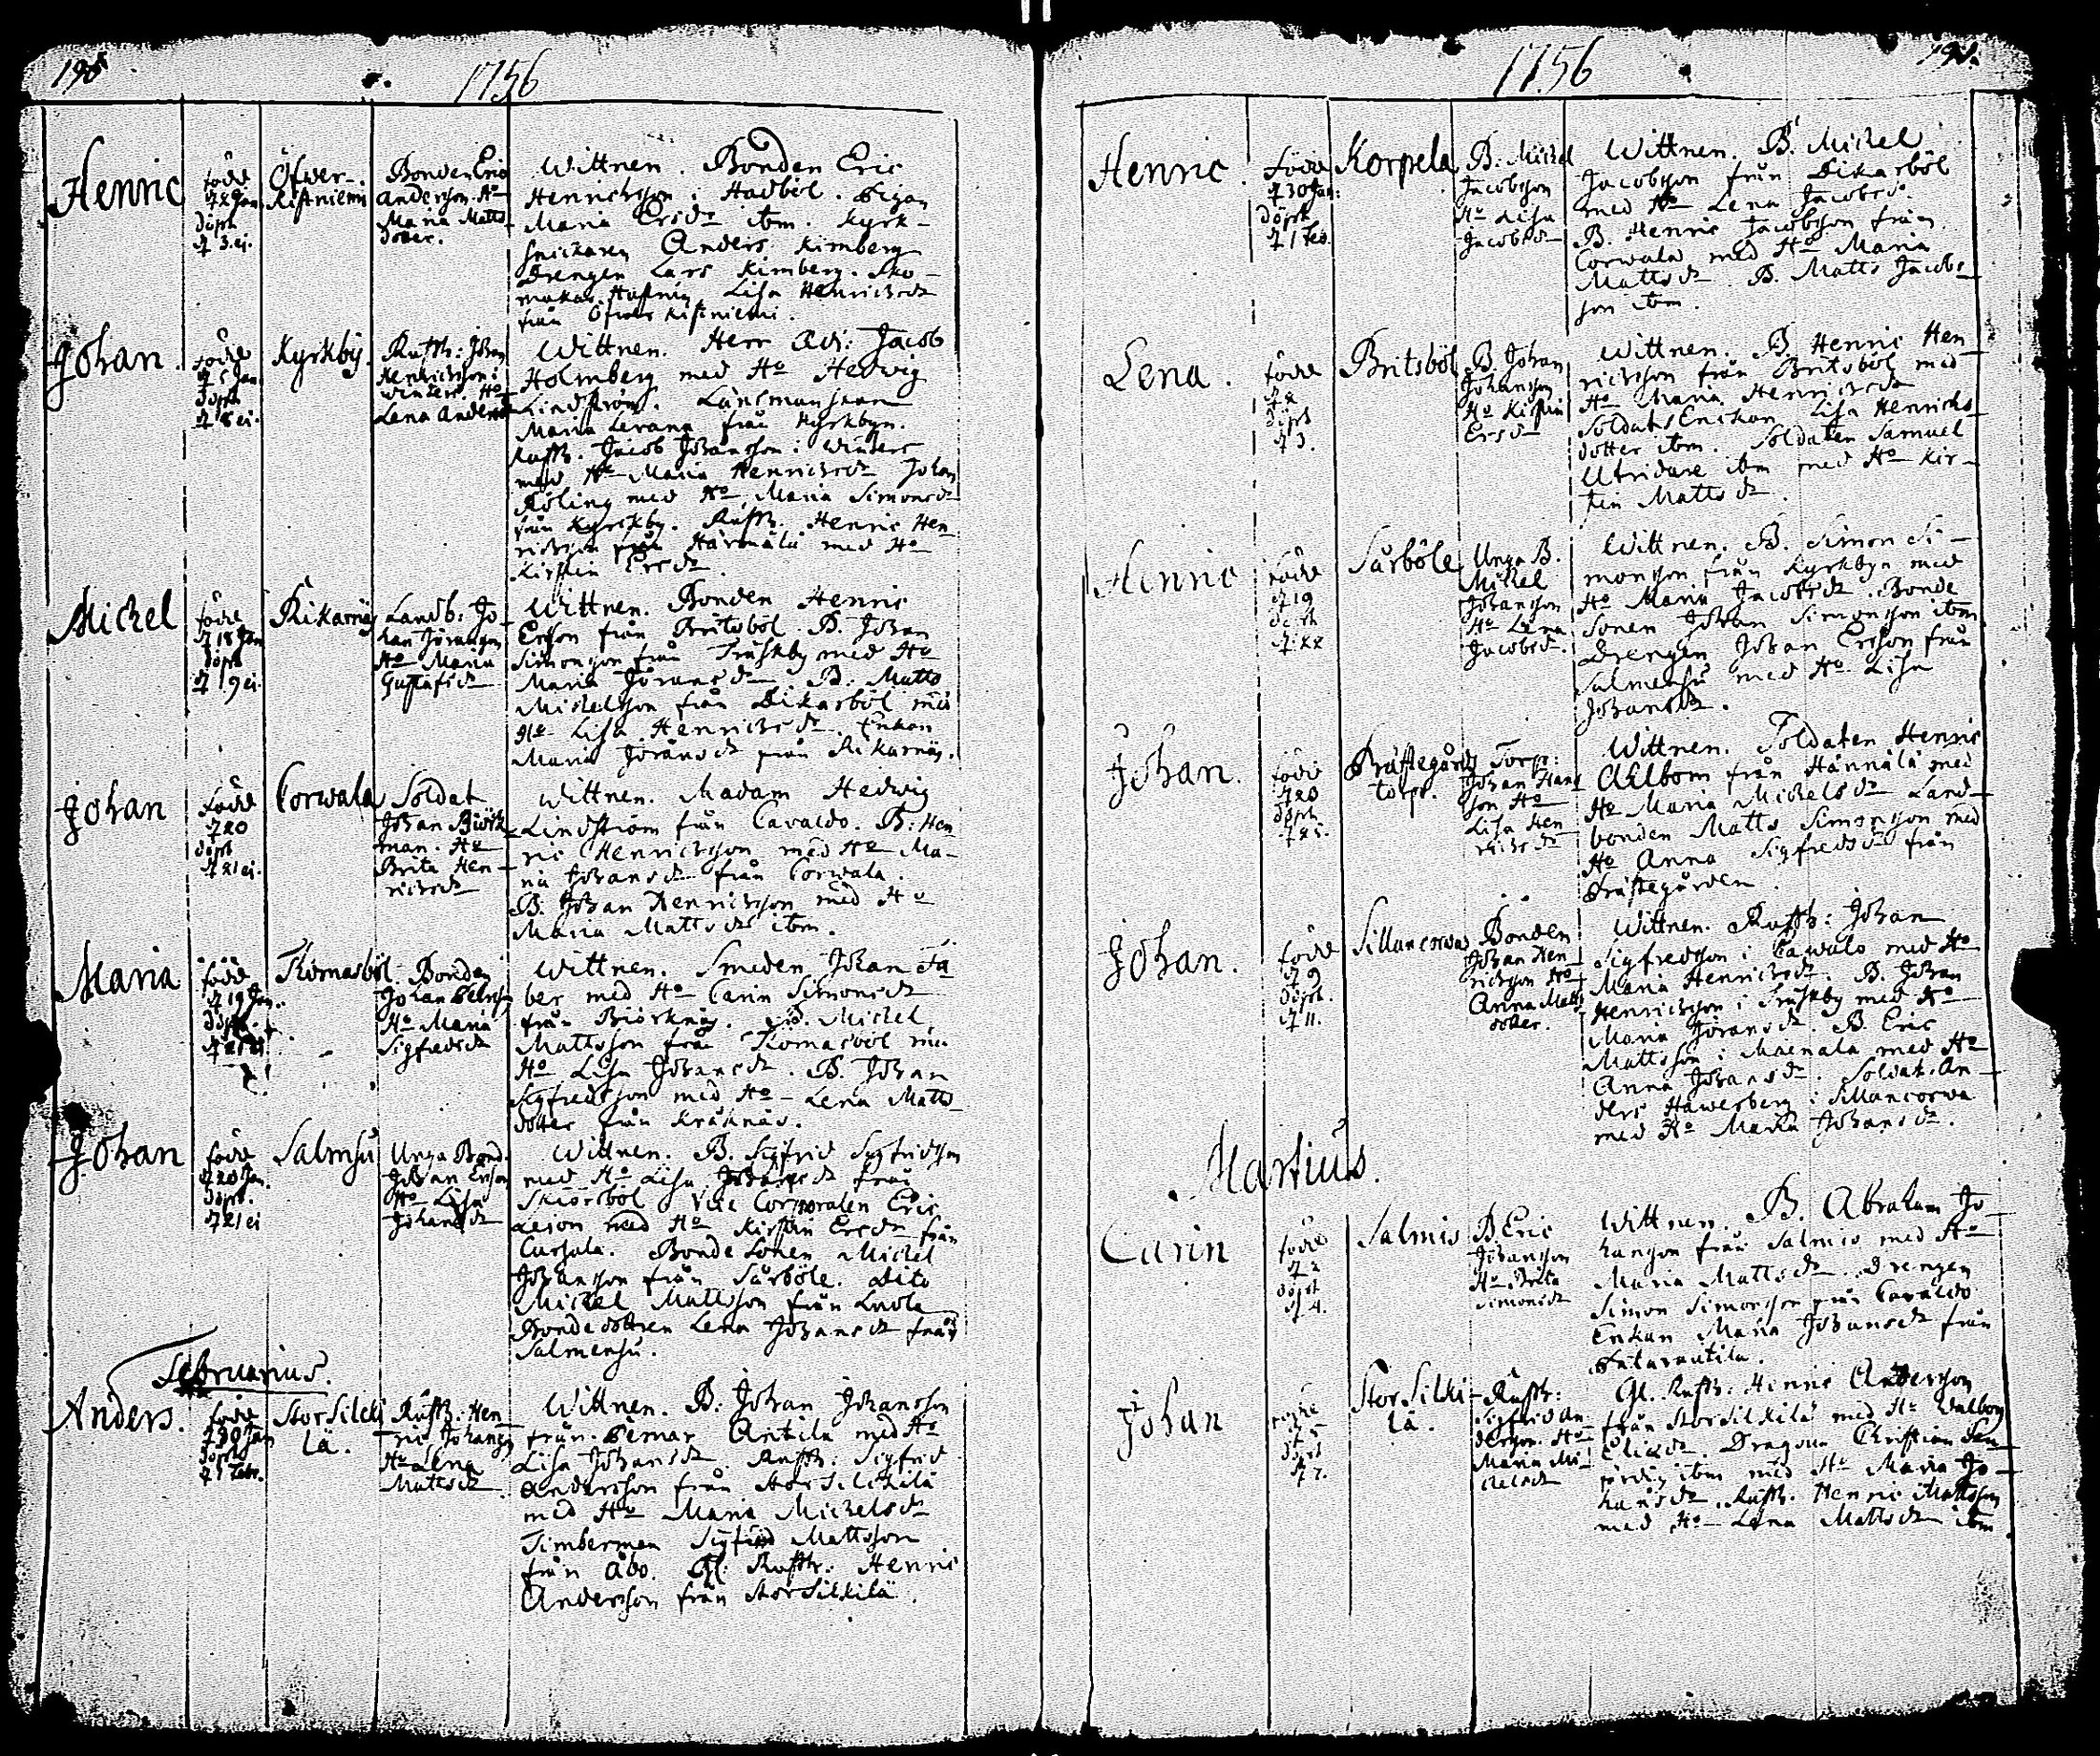 190
1756
Henric
född
d. 2 Jan.
döpt
d. 3 ei.
Öfwer-
Kistniemi
Bonden Eric
Anderson. Ho
Maria Matts
dotter.
Wittnen. Bonden Eric
Henricsson i Hadböl. Pigan
Maria Ersdr ibm. Kyrk-
snickaren Anders Kimberg
Drengen Lars Kimberg. Sko-
makar Lisa Henricsdr
från Öfwer Kistniemi.
Johan
född
d. 5 Jan.
döpt
d. 8 ei.
Kyrkby.
Rusth: Johan
Henricsson i
Winters Ho
Lena Andersdr
Wittnen. Herr Adj: Jacob
Holmberg med Ho Hedwig
Lindström. Länsmanskan
Maria Levana från Kyrkbyn.
Rusth. Jacob Johansson i Winters
med Ho Maria Henricsdr Johan
Röling med Ho Maria Simonsdr
från Kyrkby. Rusth. Henric Hen-
ricsson från Härmälä med Ho
Kirstin Ersdr
Michel
född
d. 18 Jan
döpt
d. 19 ei.
Rikarnäs
Landb: Jo-
han Göransson
Ho Maria
Gustafsdr
Wittnen. Bonden Henric
Ersson från Britsböl. B. Johan
Simonsson från Träskby med Ho
Maria Göransdr B. Matts
Michelsson från Dikarböl med
Ho Lisa Henricsdr Enkan
Maria Göransdr från Rikarnäs.
Johan
född
d. 20
döpt
d. 21 ei.
Corwala
Soldat
Johan Biörk-
man. Ho
Brita Hen-
ricsdr
Wittnen. Madam Hedwig
Lindström från Cavaldo. B: Hen-
ric Henricsson med Ho Ma-
ria Johansdr från Corwala.
B. Johan Henricsson med Ho
Maria Mattsdr ibm.
Maria
född
d. 19 Jan.
döpt
d. 21 ei
Thomasböl
Bonden
Johan
Ho Maria
Sigfredsdr
Wittnen. Smeden Johan Fa-
ber med Ho Carin Simonsdr
från Biörknäs. B. Michel
Mattsson från Tomasböl med
Ho Lisa Johansdr. B. Johan
Sigfredsson med Ho Lena Matts-
dotter från Kråknäs.
Johan
född
d. 20 Jan.
döpt.
d. 21 ei
Salmsu
Unga Bond.
Johan Ersson
Ho Lisa
Johansdr
Wittnen. B. Sigfrid Sigfridsson
med Ho Lisa Johansdr från
Skiörsböl Vice Corporalen Eric
Leion med Ho Kirstin Ersdr från
Cursala. Bonde Sonen Michel
Johansson från Särböle. Dito
Michel Mattsson från
Bondedottren Lena Johansdr från
Salmensu.
Februarius.
Anders.
född
d. 30 Jan
döpt
d. 5 Febr.
Stor Silcki-
lä.
Rusth: Hen-
ric Johansson
Ho Lena
Mattsdr
Wittnen. B: Johan Johansson
från Pemar Antila med Ho
Lisa Johansdr. Rusth: Sigfrid
Andersson från Stor Silkilä
med Ho Maria Michelsdr
Timberman Sigfrid Mattsson
från Åbo. Gl: Rusth: Henric
Andersson från Stor Silkilä.
1756
191.
Henric.
född
d. 30 Jan:
döpt
d. 1 Feb.
Korpela
B: Michel
Jacobsson
Ho Lisa
Jacobsdr
Wittnen. B. Michel
Jacobsson från Dikarböl
med Ho Lena Jacobsdr.
B. Henric Jacobsson från
Corwala med Ho Maria
Mattsdr B. Matts Jacobs-
son ibm.
Lena.
född
d. 2
döpt
d. 3.
Britsböl
B. Johan
Johansson
Ho Kirstin
Ersdr
Wittnen. B. Henric Hen-
ricsson från Britsböl med
Ho Maria Henricsdr
Soldats Enckan Lisa Henrichs-
dotter ibm. Soldaten Samuel
Utridare ibm med Ho Kir-
stin Mattsdr.
Henric
född
d. 19
döpt
d. 22
Särböle
Unga B.
Michel
Johansson
Ho Lena
Jacobsdr.
Wittnen. B. Simon Si-
monsson från Kyrkbyn med
Ho Maria Jacobsdr. Bonde
Sonen Johan Simonsson ibm
Drengen Johan Ersson från
Salmensu med Ho Lisa
Johansdr.
Johan.
född
d. 20
döpt
Prästegårds
torp.
Torp:
Johan Hans
son Ho
Lisa Hen-
ricsdr
Wittnen. Soldaten Henric
Ahlbom från Hännälä med
Ho Maria Michelsdr Land-
bonden Matts Simonsson med
Ho Anna Sigfredsdr från
Prästegården.
Johan.
född
d. 9
döpt.
d. 11.
Sillancorwa
Bonden
Johan Hen-
ricsson Ho
Anna Matts
dotter.
Wittnen. Rusth: Johan
Sigfredsson i Cawalo med Ho
Maria Henricsdr. B. Johan
Henricsson i Träskby med Ho
Maria Göransdr. B. Eric
Mattsson i Maenala med Ho
Anna Johansdr. Soldat. An-
ders Hawerberg i Sillancorwa
med Ho Maria Johansdr.
Martius.
Carin
född
d. 2
döpt
d. 4.
Salmis
B. Eric
Johansson
Ho Brita
Simonsdr
Wittnen. B. Abraham Jo-
hansson från Salmis med Ho
Maria Mattsdr. Drengen
Simon Simonsson från Cavaldo
Enkan Maria Johansdr från
Johan
född
d. 5
döpt
d. 7.
Stor Silcki-
lä.
Rusth:
Sigfrid An-
dersson. Ho
Maria Mi-
chelsdr
Gl. Rusth: Henric Andersson
från Stor Silkilä med Ho Walborg
Dragoun Christian
ibm med Ho Maria Jo-
hansdr. Rusth. Henric Mattsson
med Ho Lena Mattsdr ibm